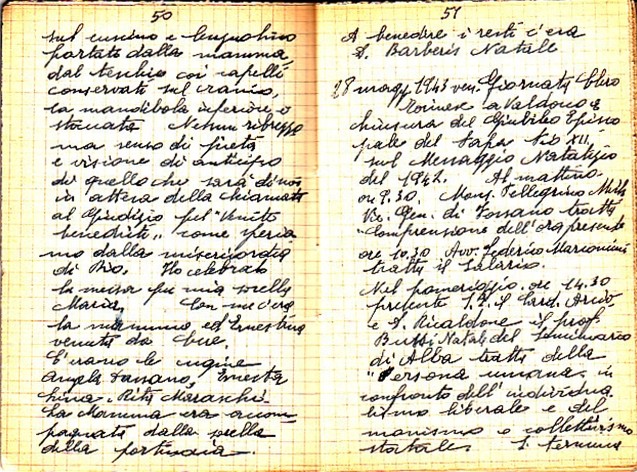 50
sul cuscino e lenzuolino
portato dalla mamma,
dal teschio coi capelli
conservati sul cranio,
la mandibola inferiore è
staccata Nessun ribrezzo
ma senso di pietà
e visione di anticipo
di quello che sarà di noi
in attesa della chiamata
al Giudizio pel "Venite
benedicti" come speria
mo dalla misericordia
di Dio. Ho celebrato
la messa per mia sorella
Maria. Con me c'era
la mamma, ed Ernestina
venuta da
C'erano le cugine
Angela Fassano, Ernesta
Rita Maraschi.
La Mamma era accom
pagnata dalla sorella
della portinaia.
51
A benedire i resti c'era
D. Barberis Natale
28 1943 ven. Giornata Clero
Torinese a Valdocco
chiusura del Giubileo Episco
pale del Papa Pio XII,
sul Messaggio Natalizio
del 1942. Al mattino
ore 9.30. Mons. Pellegrino
Vic. Gen. di Fossano tratta
"Comprensione dell'ora presente
ore 10.30 Avv. Federico Marconcini
tratta il Salario.
Nel pomeriggio ore 14.30
presente S. E. il Card. Arciv
e D. Ricaldone il prof.
Bussi Natale del Seminario
di Alba tratta della
"Persona umana in
confronto dell'individua
lismo liberale e del
marxismo o collettivismo
statale.